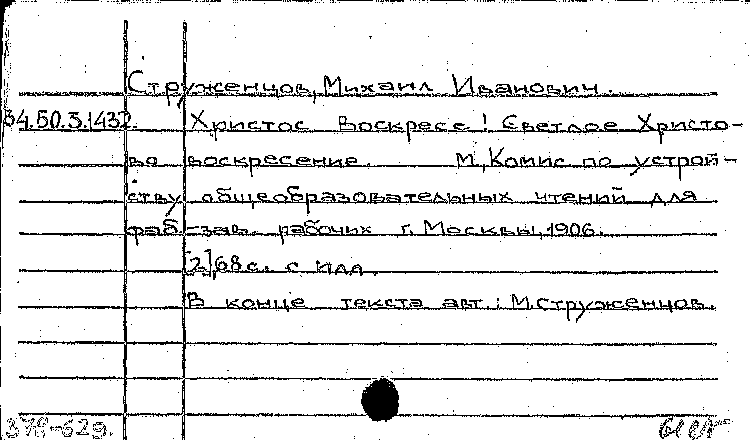 Струженцов, Михаил Иванович.
34.50.3.1432. Христос воскресе! Светлое Христо-
во воскресение. М., Комис. по устрой-
ству общеобразовательных чтений для
фаб.-зав. рабочих г. Москвы, 1906.
[2], 68 с. с илл.
В конце текста авт.: М. Струженцов.
379-62g.